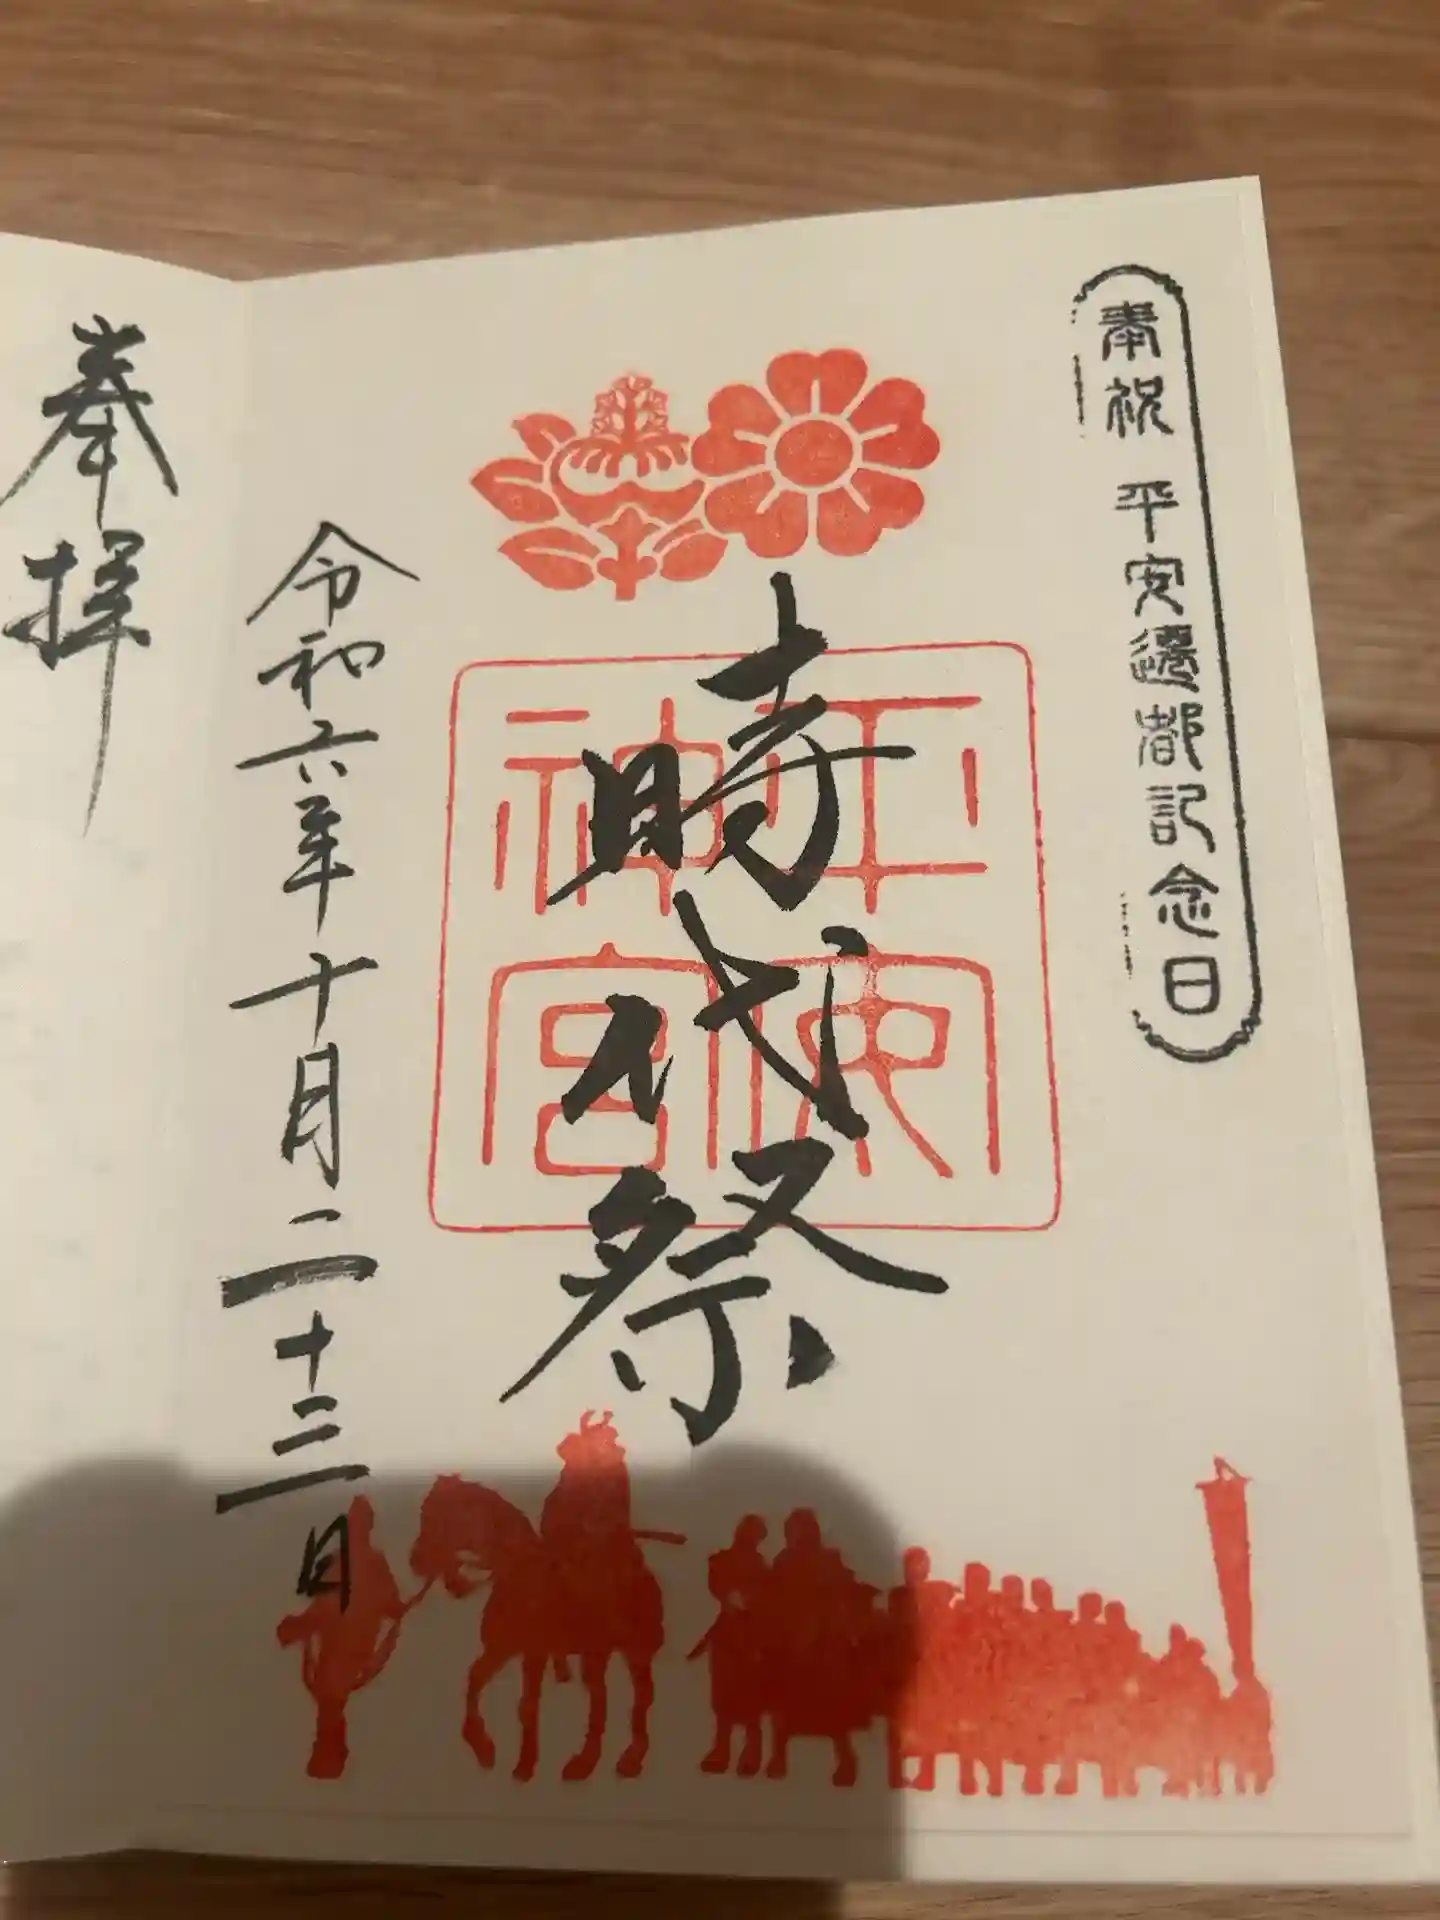 奉祝 平安遷都記念日
時代祭
平安神宮
令和六年十月二十三日
奉拝